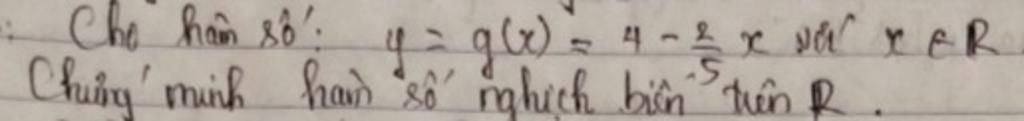 : Cho hàm số: y = g(x) = 4 - \frac{2}{5}x với x ∈ R.
Chứng minh hàm số nghịch biến trên R.